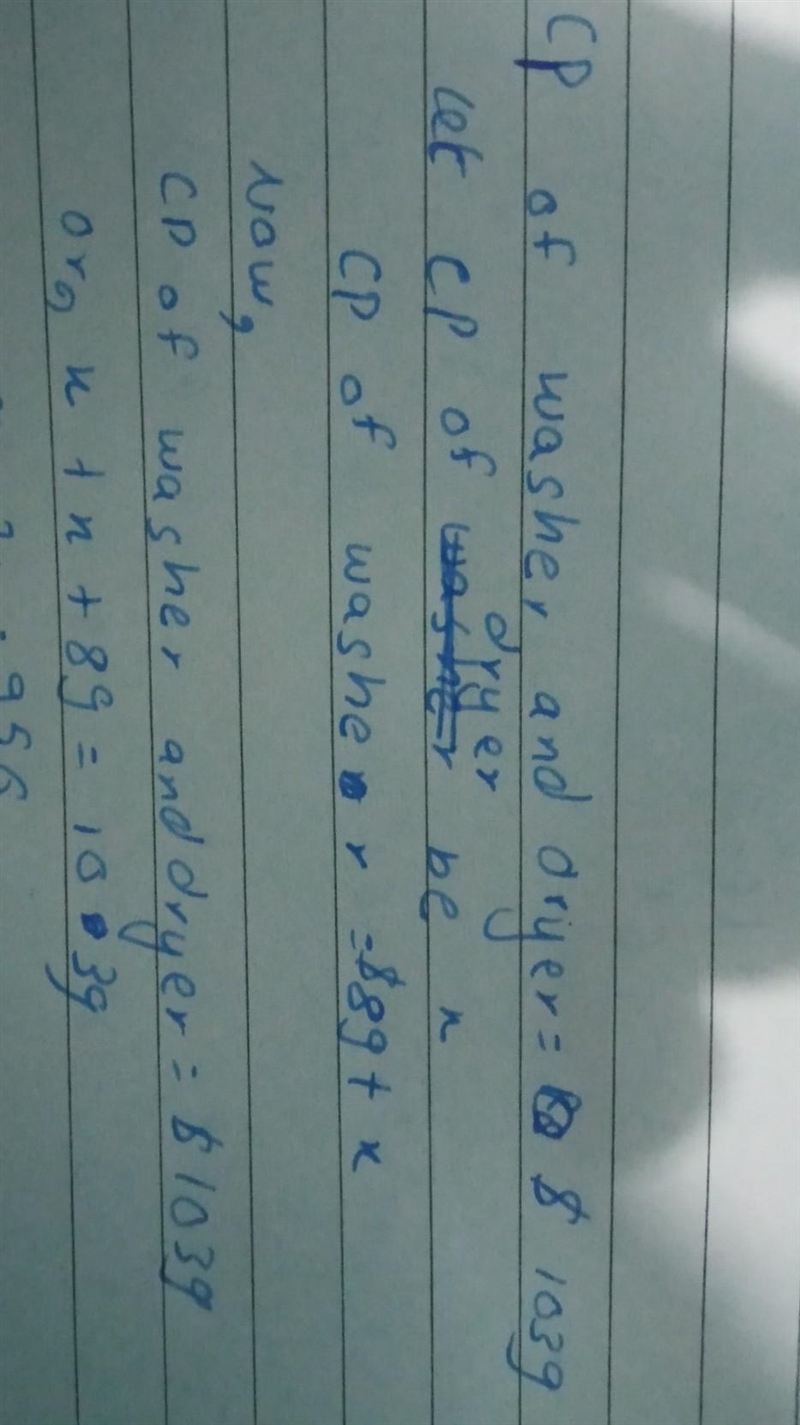 CP of washer and dryer = $ 1039
Let CP of dryer be x
CP of washer = $89 + x
Now,
CP of washer and dryer = $ 1039
or, x + x + 89 = 1039